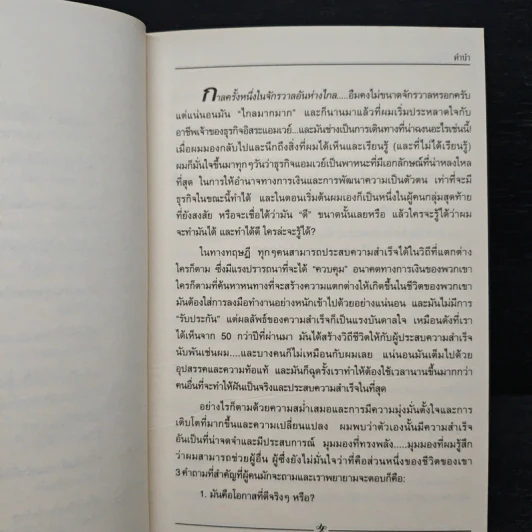 คำนำ
กาลครั้งหนึ่งในจักรวาลอันห่างไกล....อืมคงไม่ขนาดจักรวาลหรอกครับ
แต่แน่นอนมัน "ไกลมากมาก" และก็นานมาแล้วที่ผมเริ่มประหลาดใจกับ
อาชีพเจ้าของธุรกิจอิสระแอมเวย์...และมันช่างเป็นการเดินทางที่น่าฉงนอะไรเช่นนี้!
เมื่อผมมองกลับไปและนึกถึงสิ่งที่ผมได้เห็นและเรียนรู้ (และที่ไม่ได้เรียนรู้)
ผมก็มั่นใจขึ้นมาทุกๆวันว่าธุรกิจแอมเวย์เป็นพาหนะที่มีเอกลักษณ์ที่น่าหลงใหล
ที่สุด ในการให้อำนาจทางการเงินและการพัฒนาความเป็นตัวตน เท่าที่จะมี
ธุรกิจในขณะนี้ทำได้ และในตอนเริ่มต้นผมเองก็เป็นหนึ่งในผู้คนกลุ่มสุดท้าย
ที่ยังสงสัย หรือจะเชื่อได้ว่ามัน "ดี" ขนาดนั้นเลยหรือ แล้วใครจะรู้ได้ว่าผม
จะทำมันได้ และทำได้ดี ใครล่ะจะรู้ได้?
ในทางทฤษฎี ทุกๆคนสามารถประสบความสำเร็จได้ในวิถีที่แตกต่าง
ใครก็ตาม ซึ่งมีแรงปรารถนาที่จะได้ "ควบคุม" อนาคตทางการเงินของพวกเขา
ใครก็ตามที่ค้นหาหนทางที่จะสร้างความแตกต่างให้เกิดขึ้นในชีวิตของพวกเขา
มันต้องใส่การลงมือทำงานอย่างหนักเข้าไปด้วยอย่างแน่นอน และมันไม่มีการ
"รับประกัน" แต่ผลลัพธ์ของความสำเร็จก็เป็นแรงบันดาลใจ เหมือนดังที่เรา
ได้เห็นจาก 50 กว่าปีที่ผ่านมา มันได้สร้างวิถีชีวิตให้กับผู้ประสบความสำเร็จ
นับพันเช่นผม....และบางคนก็ไม่เหมือนกับผมเลย แน่นอนมันเต็มไปด้วย
อุปสรรคและความท้อแท้ และมันก็ฉุดรั้งเราทำให้ต้องใช้เวลานานขึ้นมากกว่า
คนอื่นที่จะทำให้ฝันเป็นจริงและประสบความสำเร็จในที่สุด
อย่างไรก็ตามด้วยความสม่ำเสมอและการมีความมุ่งมั่นตั้งใจและการ
เติบโตที่มากขึ้นและความเปลี่ยนแปลง ผมพบว่าตัวเองนั้นมีความสำเร็จ
อันเป็นที่น่าจดจำและมีประสบการณ์ มุมมองที่ทรงพลัง.....มุมมองที่ผมรู้สึก
ว่าผมสามารถช่วยผู้อื่น ผู้ซึ่งยังไม่มั่นใจว่าที่คือส่วนหนึ่งของชีวิตของเขา
3 คำถามที่สำคัญที่ผู้คนมักจะถามและเราพยายามจะตอบก็คือ:
1. มันคือโอกาสที่ดีจริงๆ หรือ?